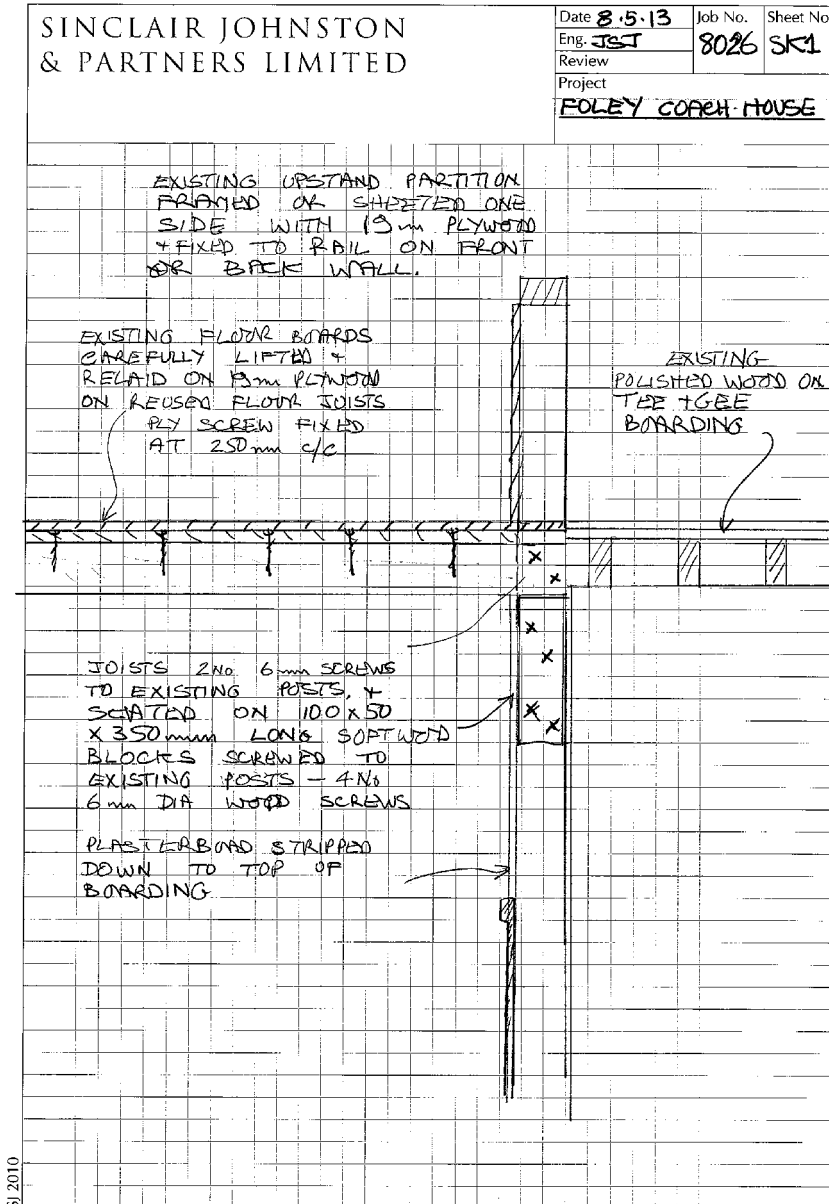 SINCLAIR JOHNSTON
& PARTNERS LIMITED
Date 8.5.13
Job No. 8026
Sheet No SK1
Eng. JSJ
Review
Project
FOLEY COACH-HOUSE
EXISTING UPSTAND PARTITION
FRAMED OR SHEETED ONE
SIDE WITH 19mm PLYWOOD
+ FIXED TO RAIL ON FRONT
OR BACK WALL.
EXISTING FLOOR BOARDS
CAREFULLY LIFTED +
RELAID ON PLYWOOD
ON REUSED FLOOR JOISTS
PLY SCREW FIXED
AT 250mm c/c
EXISTING
POLISHED WOOD ON
TEE + GEE
BOARDING
JOISTS 2No 6mm SCREWS
TO EXISTING POSTS, +
SEATED ON 100 x 50
x 350mm LONG SOFTWOOD
BLOCKS SCREWED TO
EXISTING POSTS - 4No
6mm DIA WOOD SCREWS
PLASTERBOARD STRIPPED
DOWN TO TOP OF
BOARDING
2010